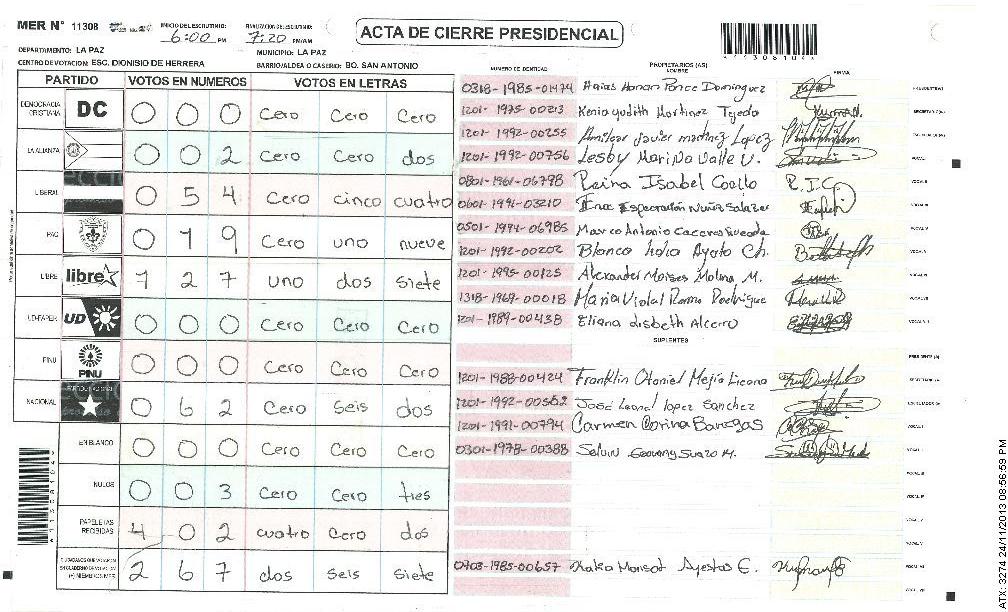 MER N° 11308
INICIO DEL ESCRUTINIO: 6:00 PM
FINALIZACION DEL ESCRUTINIO: 7:20 PM/AM
ACTA DE CIERRE PRESIDENCIAL
DEPARTAMENTO: LA PAZ
MUNICIPIO: LA PAZ
CENTRO DE VOTACION: ESC. DIONISIO DE HERRERA
BARRIO/ALDEA O CASERIO: BO. SAN ANTONIO
PARTIDO VOTOS EN NUMEROS VOTOS EN LETRAS
DEMOCRACIA CRISTIANA DC 0 0 0 Cero Cero Cero
LA ALIANZA 0 0 2 Cero Cero dos
LIBERAL 0 5 4 Cero cinco cuatro
PAC 0 1 9 Cero uno nueve
LIBRE libre 1 2 7 uno dos siete
UD-FAPER UD 0 0 0 Cero Cero Cero
PINU PINU 0 0 0 Cero Cero Cero
NACIONAL 0 6 2 Cero seis dos
EN BLANCO 0 0 0 Cero Cero Cero
NULOS 0 0 3 Cero Cero tres
PAPELETAS RECIBIDAS 4 0 2 cuatro Cero dos
2 6 7 dos seis siete
NUMERO DE IDENTIDAD
PROPIETARIOS (AS)
NOMBRE
FIRMA
0318-1985-01474 Honan Ponce Dominguez
1201-1975-00213 Kenia Judith Martinez Tejeda
1201-1992-00255 Amilcar Javier martinez Lopez
1201-1992-00756 Lesby Marina Valle V.
0801-1961-06798 Reina Isabel Coello R.I.C.
0601-1991-03210 Espectración Nuñez Salazar
0501-1974-06985 Marco Antonio Caceres
1201-1992-00202 Blanca Ayala Ch.
1201-1995-00125 Alexander Moises Molina M.
1318-1969-00018 Maria Rodriguez
1201-1989-00438 Eliana Lisbeth Alcerro
SUPLENTES
1201-1988-00424 Franklin Otoniel Mejia Licona
1201-1992-00562 José Leonel lopez Sanchez
1201-1991-00794 Carmen Corina Banegas
0301-1978-00388 Selvin Geovany Suazo M.
0703-1985-00657 Ayestas E.
ATX: 3274 24/11/2013 08:56:59 PM